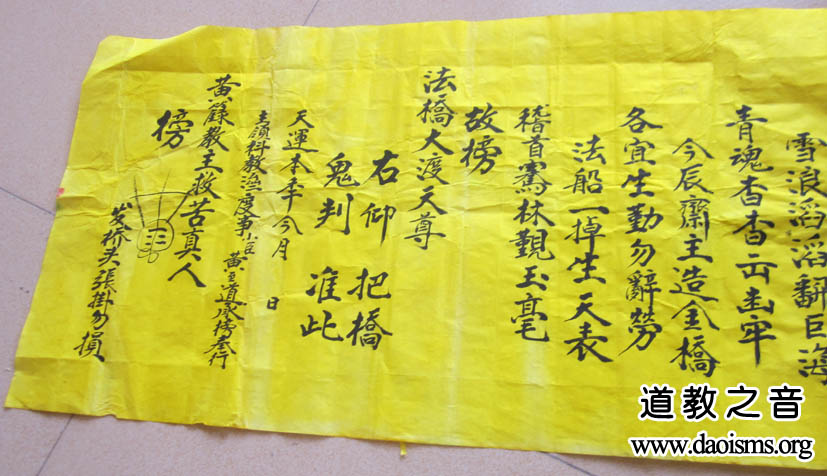 雪浪滔滔翻巨海
青魂杳杳去幽牢
今辰齋主造金橋
各宜生勤勿辭勞
法船一掉生天表
稽首騫林覲玉毫
故榜
法橋大渡天尊
右仰 把橋
鬼判 准此
天運本年今月 日
主領科教 黄至道承榜奉行
黄籙教主救苦真人
榜
发桥头張掛勿損
道教之音
www.daoisms.org